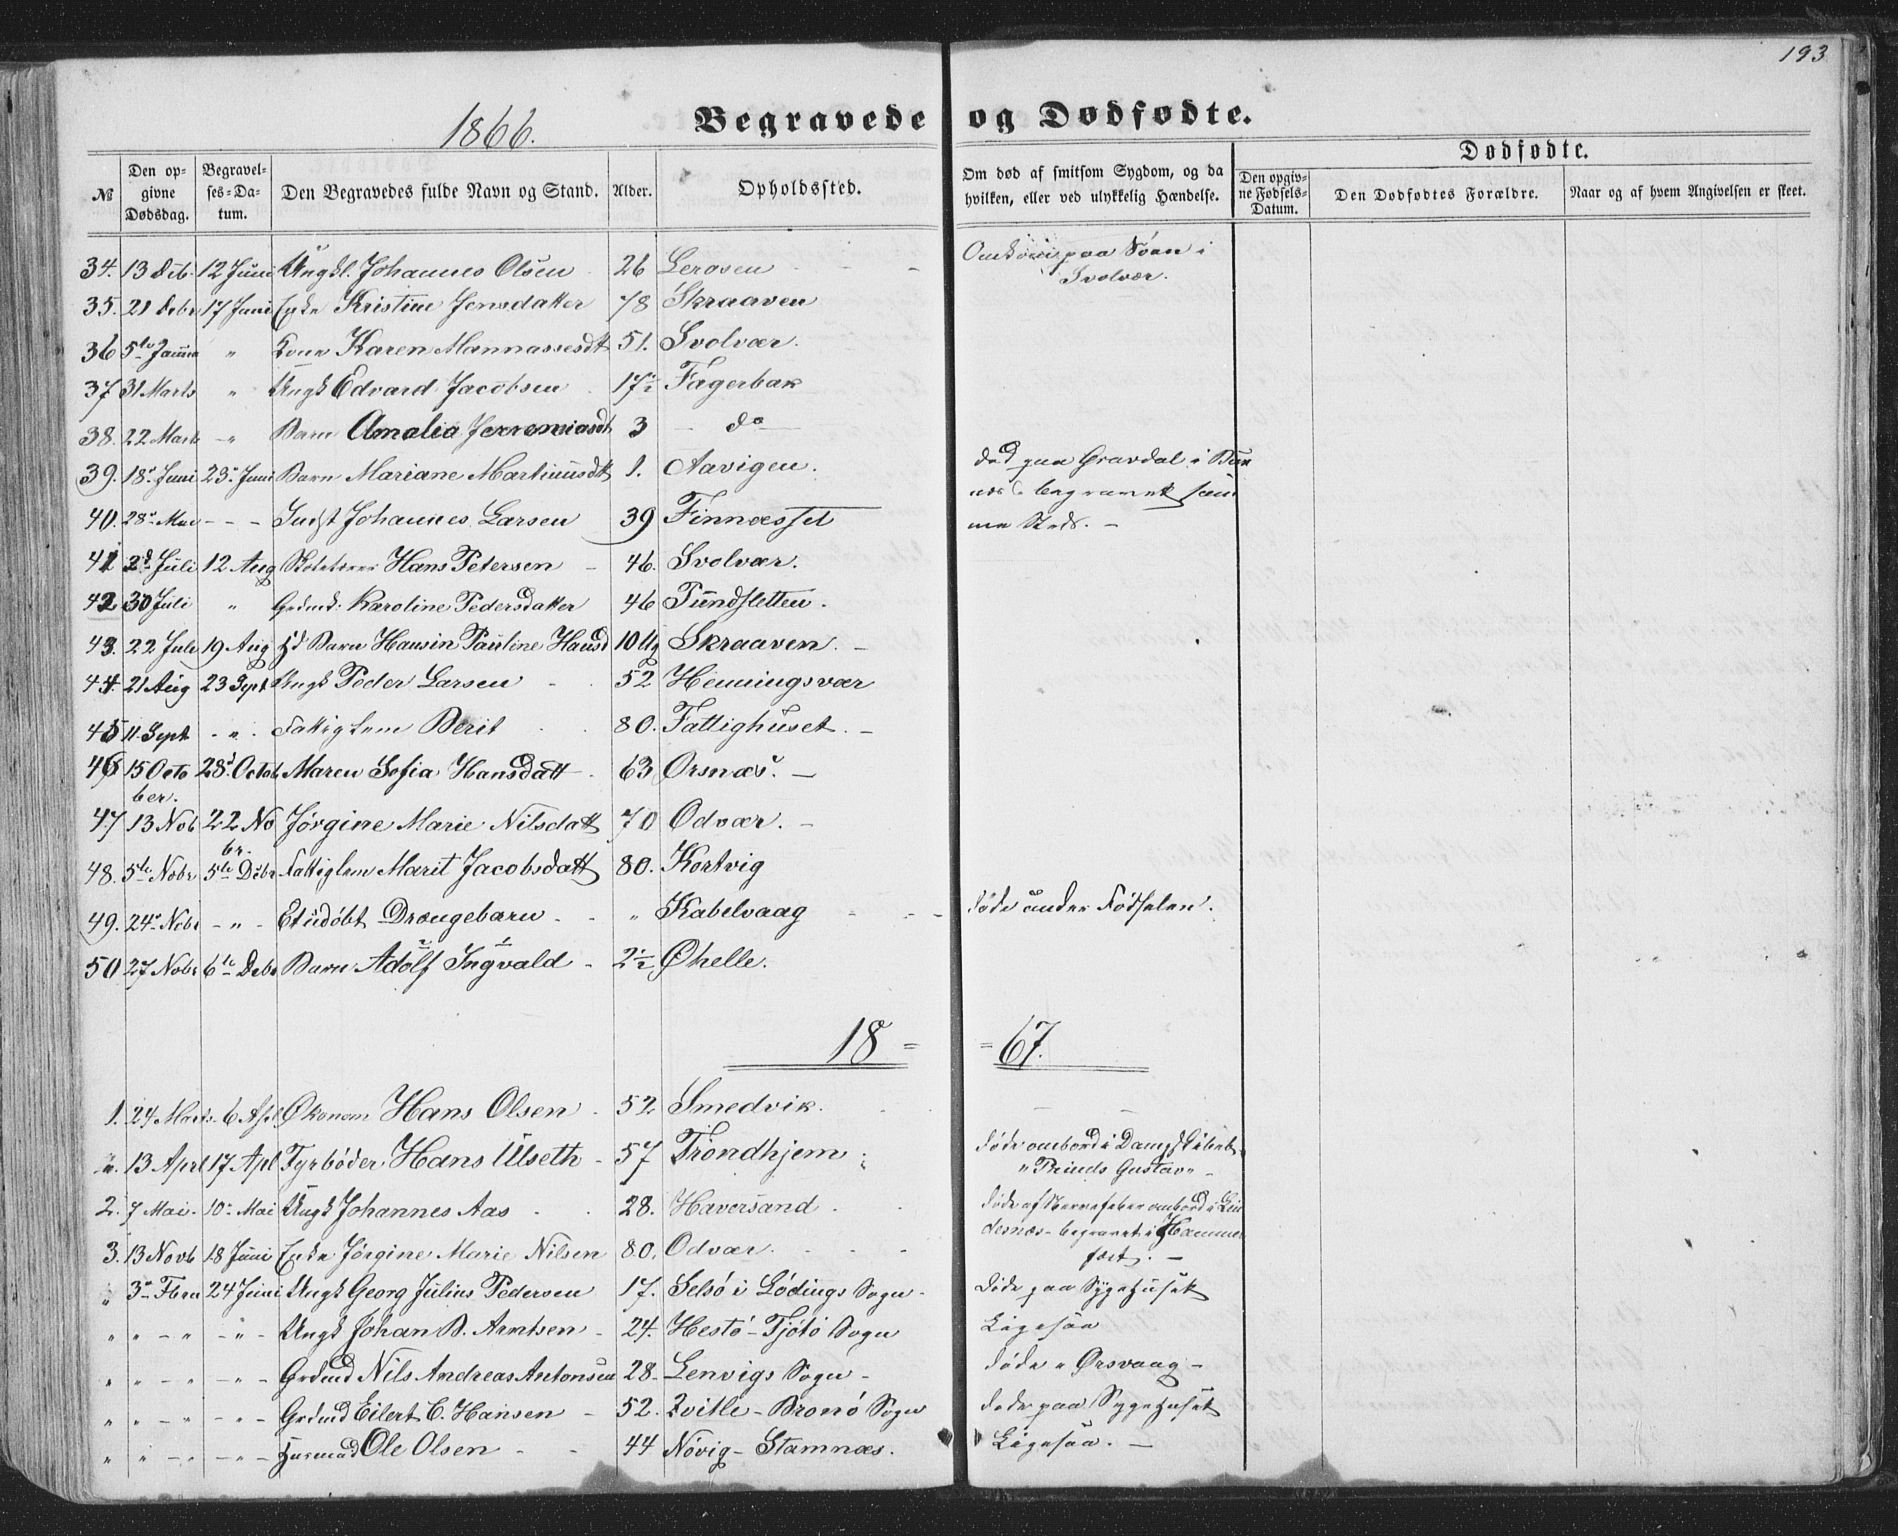 193
1866. Begravede og Dødfødte.
Dødfødte.
№ Den opgivne Dødsdag. Begravelses-Datum. Den Begravedes fulde Navn og Stand. Alder. Opholdssted. Om død af smitsom Sygdom, og da hvilken, eller ved ulykkelig Hændelse. Den opgivne Fødsels-Datum. Den Dødfødtes Forældre. Naar og af hvem Angivelsen er skeet.
34. 13 Deb. 12 Juni Ungkl. Johannes Olsen 26 Lerosen Omkom paa Søen i Svolvær.
35. 21 Debr 17 Juni Enke Kristine Jensdatter 78 Skraaven
36 5te Janua " Kone Karen Mannassesdt 51. Svolvær.
37 31 Marts " Ungk Edvard Jacobsen 17½ Fagerbak
38. 22 Mart - " - Barn Amalia Jerremiasdt 3 - do -
39. 18. Juni 23. Juni Barn Mariane Martinusdt 1. Aavigen. død paa Gravdal i Bux
næs & begravet sam
40. 28. Mai - - - Indst Johannes Larsen 39 Finnæsset me Steds. -
41 2d Juli 12 Aug Hans Petersen - 46. Svolvær.
42 30 Juli " Grdmd: Karoline Pedersdatter 46 Tundstetten.
43. 22 Juli 19 Aug Barn Hansin Pauline Hansd 10 Ug Skraaven. -
44. 21 Aug 23 Sept Ungk Peder Larsen 52 Henningsvær
45 11. Sept - " - Fattiglem Berit 80. Fattighuset. -
46 15 Octo 28d Octob Maren Sofia Hansdatt 63 Ørsnæs. -
ber.
47 13 Nob 22 No Jørgine Marie Nilsdatt 70 Odvær. -
br.
48. 5te Nobr 5te Debr Fattiglem Marit Jacobsdatt 80. Kortvig
49. 24. Nobr - " - Et udøbt Drængebarn - - " Kabelvaag - - - døde under Fødselen.
50 27 Nobr 6te Debr Barn Adolf Ingvald - 2½ Øhelle.
18 = = 67.
1. 24 Marts. 6 Apl Økonom Hans Olsen 52 Smedvik.
". 13 Aprl 17 Apl Fyrbøder Hans Ulseth - 57 Trondhjem døde ombord i Dampskibet
"Prinds Gustav" -
2. 7 Mai. 10. Mai Ungk Johannes Aas 28. Haversand døde af Nervefeber ombord i Lin
desnæs - begravet i Hammer
3. 13 Novb 18 Juni Enke Jørgine Marie Nilsen 80. Odvær. fest. -
" 3. Fbru 24 Juni Ungk Georg Julius Pedersen 17. Selsø i Lødings Sogn - døde paa Sygehuset
" " - " - - " - Ungk Johan B. Arntsen - 24. Hestø - Tjøtø Sogn Ligesaa
" " - " - " - Grdmd Nils Andreas Antonsen 28 - Lenvigs Sogn - døde " Ørsvaag -
" " - " - " - Grdmd Eilert C. Hansen - 52. - Bronø Sogn døde paa Sygehuset
" " - " - " - Husmad Ole Olsen - - 44 Nøvig - Stamnæs. Ligesaa. -